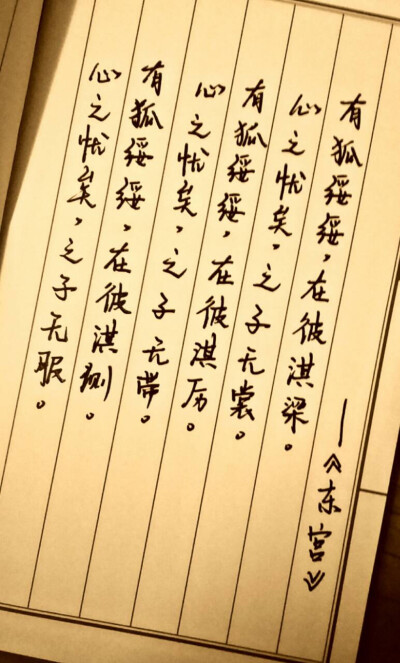 有狐绥绥，在彼淇梁。
心之忧矣，之子无裳。
有狐绥绥，在彼淇厉。
心之忧矣，之子无带。
有狐绥绥，在彼淇侧。
心之忧矣，之子无服。
——《东宫》